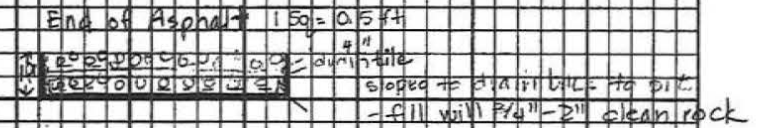 End of Asphalt 1 Sq = 0.5 ft
4"
tile
sloped to drain tile to pit
- fill will 3/4"-2" clean rock